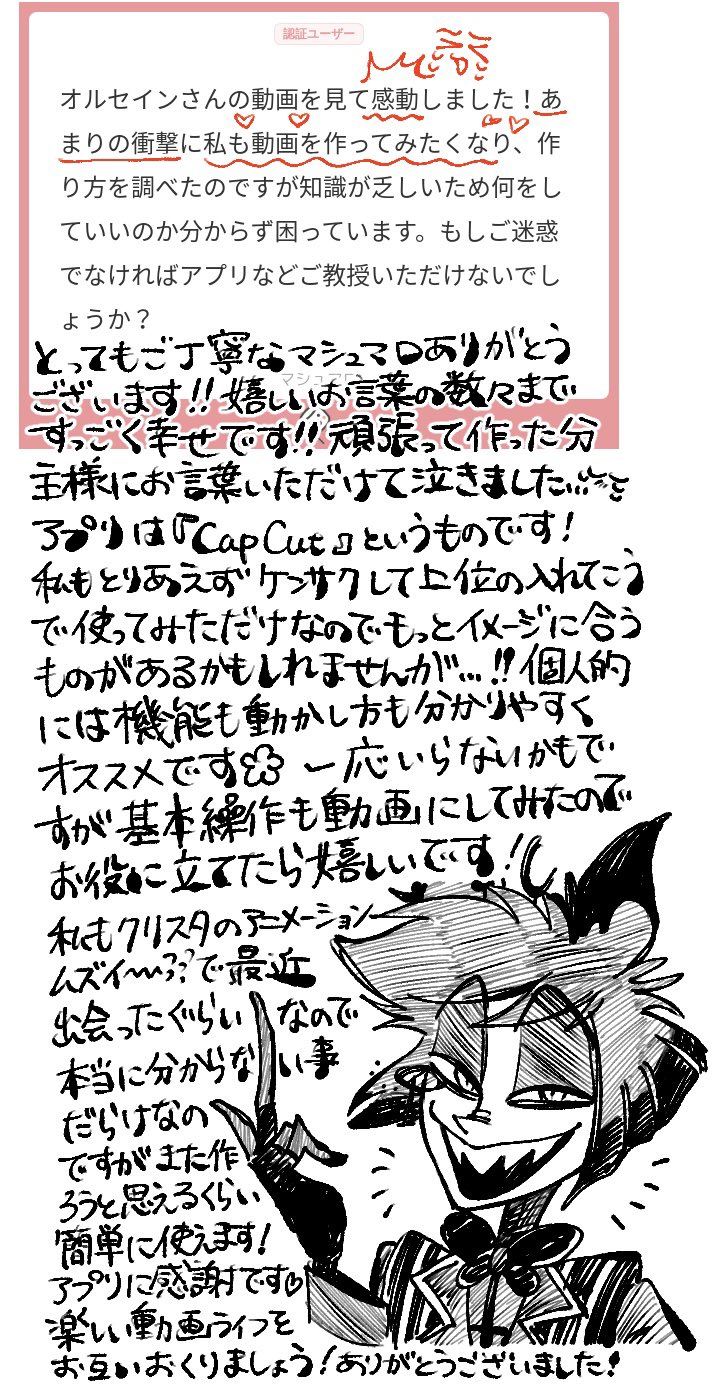 認証ユーザー
オルセインさんの動画を見て感動しました！あ
まりの衝撃に私も動画を作ってみたくなり、作
り方を調べたのですが知識が乏しいため何をし
ていいのか分からず困っています。もしご迷惑
でなければアプリなどご教授いただけないでし
ょうか？
とってもご丁寧なマシュマロありがとう
マシュマロ
ございます!!嬉しいお言葉の数々まで
すっごく幸せです!!頑張って作った分
主様にお言葉いただけて泣きました…
アプリは『CapCut』というものです！
私もとりあえずケンサクして上位の入れてこう
で使ってみただけなのでもっとイメージに合う
ものがあるかもしれませんが…!!個人的
には機能も動かし方も分かりやすく
オススメです 一応いらないかもで
すが基本操作も動画にしてみたので
お役に立てたら嬉しいです！
私もクリスタのアニメーション
ムズイ〜??で最近
出会ったぐらいなので
本当に分からない事
だらけなの
ですがまた作
ろうと思えるくらい
簡単に使えます！
アプリに感謝です♡
楽しい動画ライフを
お互いおくりましょう！ありがとうございました！